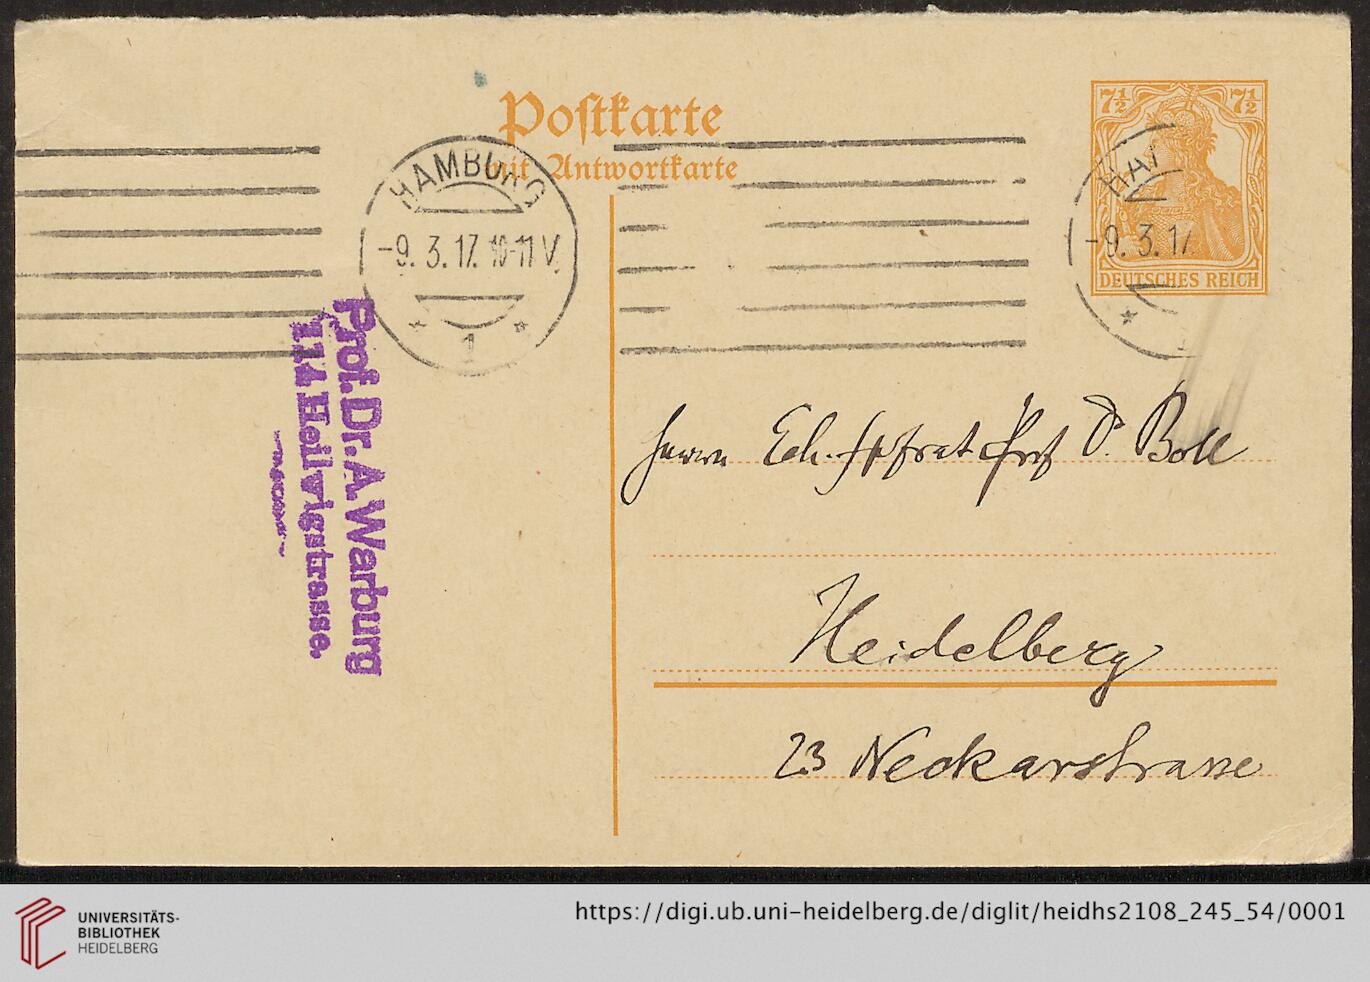 Postkarte
mit Antwortkarte
7½ 7½
DEUTSCHES REICH
HAMBURG
-9.3.17. 10-11 V.
* 1 *
HA
-9.3.17
*
Prof. Dr. A. Warburg
114 Heilwigstrasse.
Herrn Geh. Hofrat Prof D. Boll
Heidelberg
23 Neckarstrasse
UNIVERSITÄTS-
BIBLIOTHEK
HEIDELBERG
https://digi.ub.uni-heidelberg.de/diglit/heidhs2108_245_54/0001